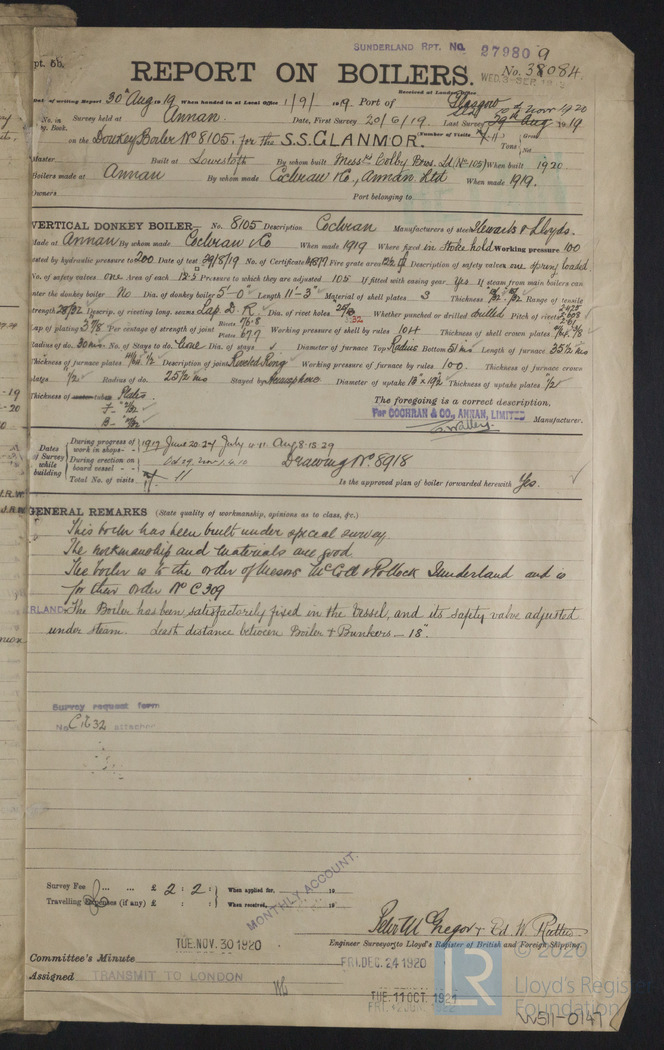 SUNDERLAND RPT. No. 27980 9
pt. 5b.
REPORT ON BOILERS.
No. 38084.
Received at London Office WED. 3-SEP. 19
of writing Report 30th Aug 1919 When handed in at Local Office 1/9/1919. Port of Glasgow
No. in Survey held at Annan. Date, First Survey 20/6/19. Last Survey 29th Aug 1919
g. Book.
2nd Nov 1920
on the Donkey Boiler No 8105, for the S.S. GLANMOR. (Number of Visits 11) Tons Gross Net
Master Built at Lowestoft By whom built Messrs Colby Bros. Ld (No 105) When built 1920.
Boilers made at Annan By whom made Cochran & Co., Annan, Ltd When made 1919.
Owners Port belonging to
VERTICAL DONKEY BOILER— No. 8105 Description Cochran Manufacturers of steel Stewarts & Lloyds.
Made at Annan By whom made Cochran & Co When made 1919 Where fixed in stoke hold Working pressure 100
ested by hydraulic pressure to 200 Date of test 29/8/19 No. of Certificate 14877 Fire grate area 12½ Description of safety valves one spring loaded
No. of safety valves one Area of each 12.5 Pressure to which they are adjusted 105 If fitted with easing gear Yes If steam from main boilers can
enter the donkey boiler No Dia. of donkey boiler 5'-0" Length 11'-3" Material of shell plates S Thickness Range of tensile
strength 28/32 Descrip. of riveting long. seams Lap D. R. Dia. of rivet holes Whether punched or drilled drilled Pitch of rivets
Lap of plating 3 7/8 Per centage of strength of joint Rivets 76.8 Plates 67.7 Working pressure of shell by rules 104 Thickness of shell crown plates
Radius of do. 30 ins No. of Stays to do. None Dia. of stays Diameter of furnace Top Radius Bottom 51 ins Length of furnace 35½ ins
Thickness of furnace plates Description of joint Riveted Ring Working pressure of furnace by rules 100. Thickness of furnace crown
plates ½ Radius of do. 25½ ins Stayed by Hemisphere Diameter of uptake 13" x 10½ Thickness of uptake plates ½
Thickness of water tubes Plates
F
B
The foregoing is a correct description,
For COCHRAN & CO., ANNAN, LIMITED
Manufacturer.
Dates of Survey while building
During progress of work in shops - - 1919 June 20.27 July 4.11. Aug 8.13.29
During erection on board vessel - - Oct 29. Nov 1.
Total No. of visits 11
Drawing No. 8918
Is the approved plan of boiler forwarded herewith Yes.
GENERAL REMARKS (State quality of workmanship, opinions as to class, &c.)
This boiler has been built under special survey
The workmanship and materials are good
The boiler is to the order of Messrs McColl & Pollock Sunderland and is
for their order No C 309
RLAND. The Boiler has been satisfactorily fixed in the Vessel, and its safety valve adjusted
under steam. Least distance between Boiler & Bunkers — 18".
Survey request form
No. attached
Survey Fee ... ... £ 2 : 2 : When applied for, 19
Travelling Expenses (if any) £ : : When received, 19
MONTHLY ACCOUNT.
Peter McGregor & Ed. W.
Engineer Surveyor to Lloyd's Register of British and Foreign Shipping.
TUE. NOV. 30 1920
Committee's Minute
FRI. DEC. 24 1920
Assigned TRANSMIT TO LONDON
TUE. 11 OCT. 1921
LR
© 2020
Lloyd's Register
Foundation
W511-0147